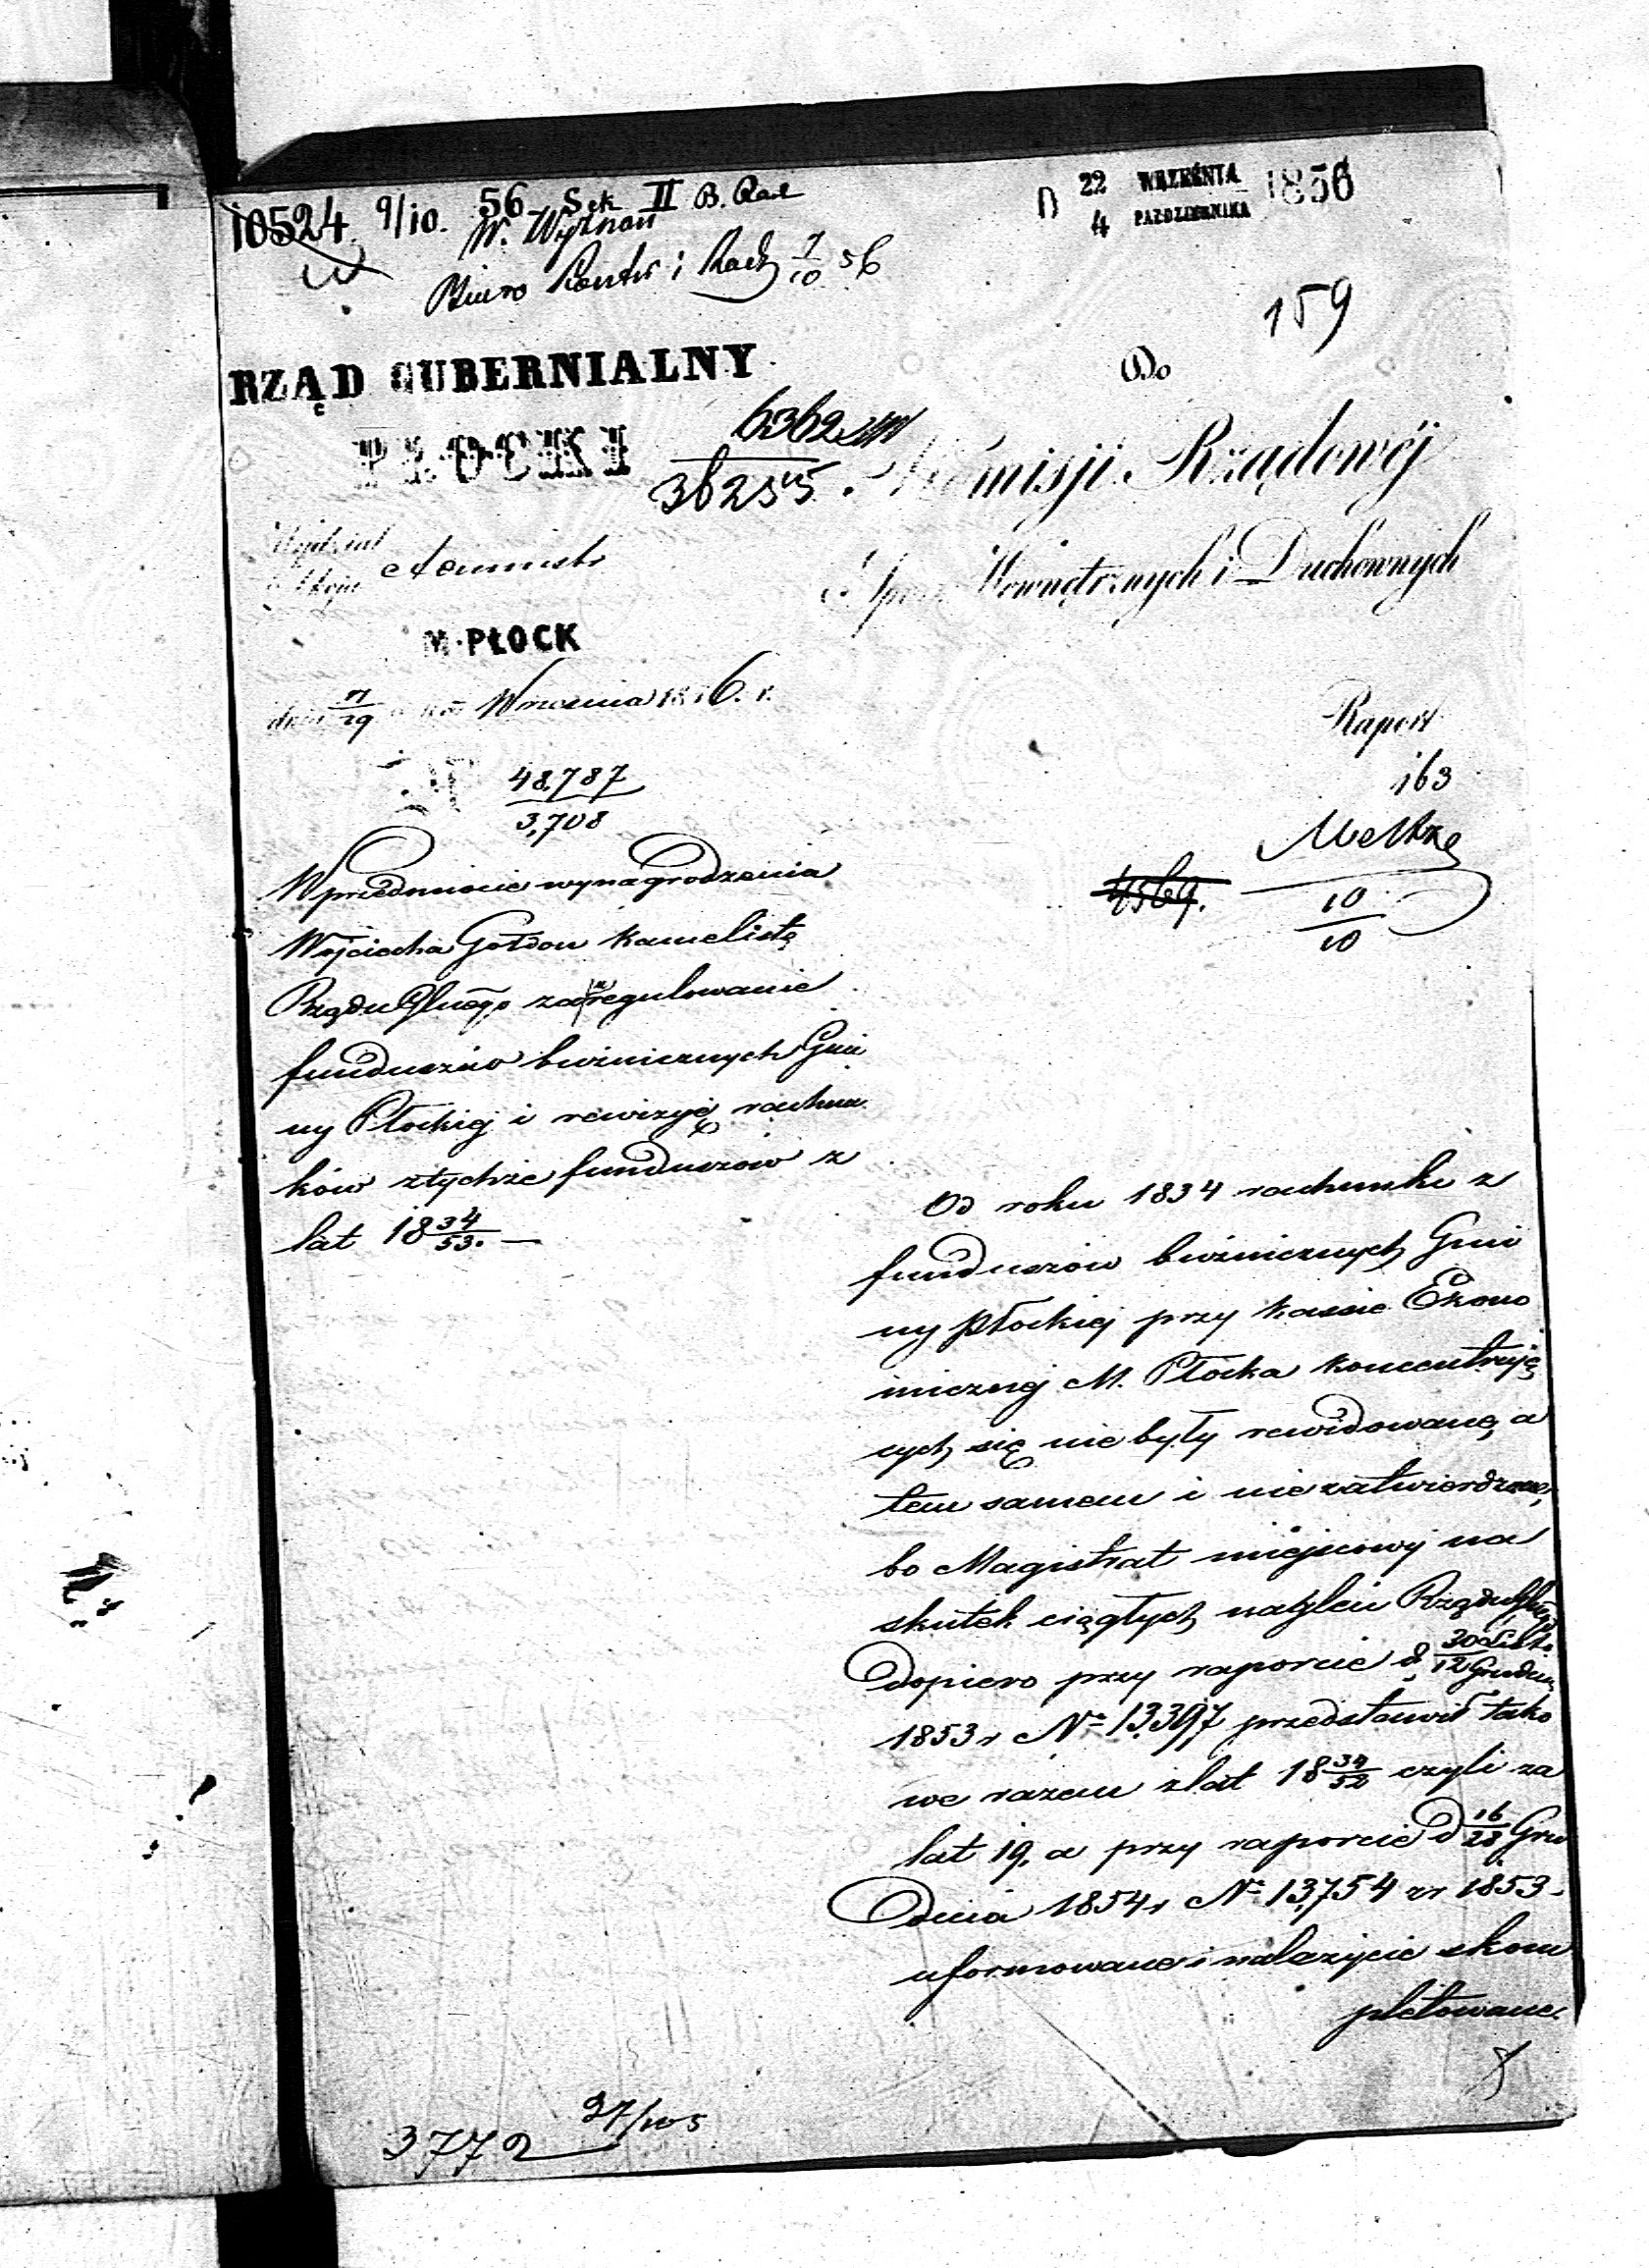 10524 9/10. 56 Sek II B. Rad
W. Wyznań
Biuro Kontr i Rach 7/10 56
D 22/4 WRZEŚNIA/PAŹDZIERNIKA 1856
159
RZĄD GUBERNIALNY
PŁOCKI
6362
36255
Do
Kommisji Rządowéj
Spraw Wewnętrznych i Duchownych
Wydział Administ
Sekcja
M. PŁOCK
dnia 17/29 Września 1856. r.
Raport
163
48,787
3,708
4569.
10
10
W przedmiocie wynagrodzenia
Wojciecha Gołdon Kancelistę
Rządu Glnégo za uregulowanie
funduszów bużnicznych Gmi
ny Płockiej i rewizyę rachun
ków z tychże funduszów z
lat 18 34/53. —
Od roku 1834 rachunki z
funduszów bużnicznych Gmi
ny Płockiej przy kassie Ekono
micznej M. Płocka koncentrują
cych się nie były rewidowane, a
tem samem i nie zatwierdzone,
bo Magistrat miejscowy na
skutek ciągłych nagleń Rządu Glnégo
dopiero przy raporcie d. 30 List./12 Grudnia
1853 r No 13397 przedstawił tako
we razem z lat 18 34/52 czyli za
lat 19, a przy raporcie d 16/28 Gru
dnia 1854 r No 13,754 z r 1853
uformowane i należycie skom
pletowane.
3772 27/10 5